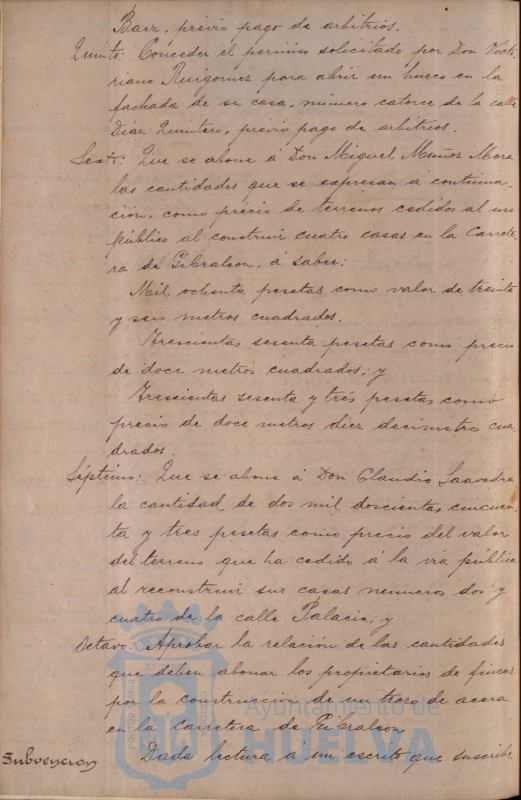 Baez, previo pago de arbitrios.
Quinto: Conceder el permiso solicitado por Don Victo-
riano Ruigomez para abrir un hueco en la
fachada de su casa, número catorce de la calle
Diaz Quintero, previo pago de arbitrios.
Sexto: Que se abone á Don Miguel Muñoz Mora
las cantidades que se expresan á continua-
cion, como précio de terrenos cedidos al uso
público al construir cuatro casas en la Carrete-
ra de Gibraleon, á saber:
Mail ochenta pesetas como valor de treinta
y seis metros cuadrados.
Trescientas sesenta pesetas como precio
de doce metros cuadrados; y
Trescientas sesenta y trés pesetas como
precio de doce metros diez decimetros cua
drados.
Séptimo: Que se abone á Don Claudio Saavedra
la cantidad de dos mil doscientas cincuen-
ta y tres pesetas como precio del valor
del terreno que ha cedido á la vía pública
al reconstruir sus casas números dos y
cuatro de la calle Palacio; y
Octavo: Aprobar la relación de las cantidades
que deben abonar los propietarios de fincas
por la construccion de un trozo de acera
en la carretera de Gibraleon
Subvencion Dada lectura á un escrito que suscribe
Ayuntamiento de
HUELVA